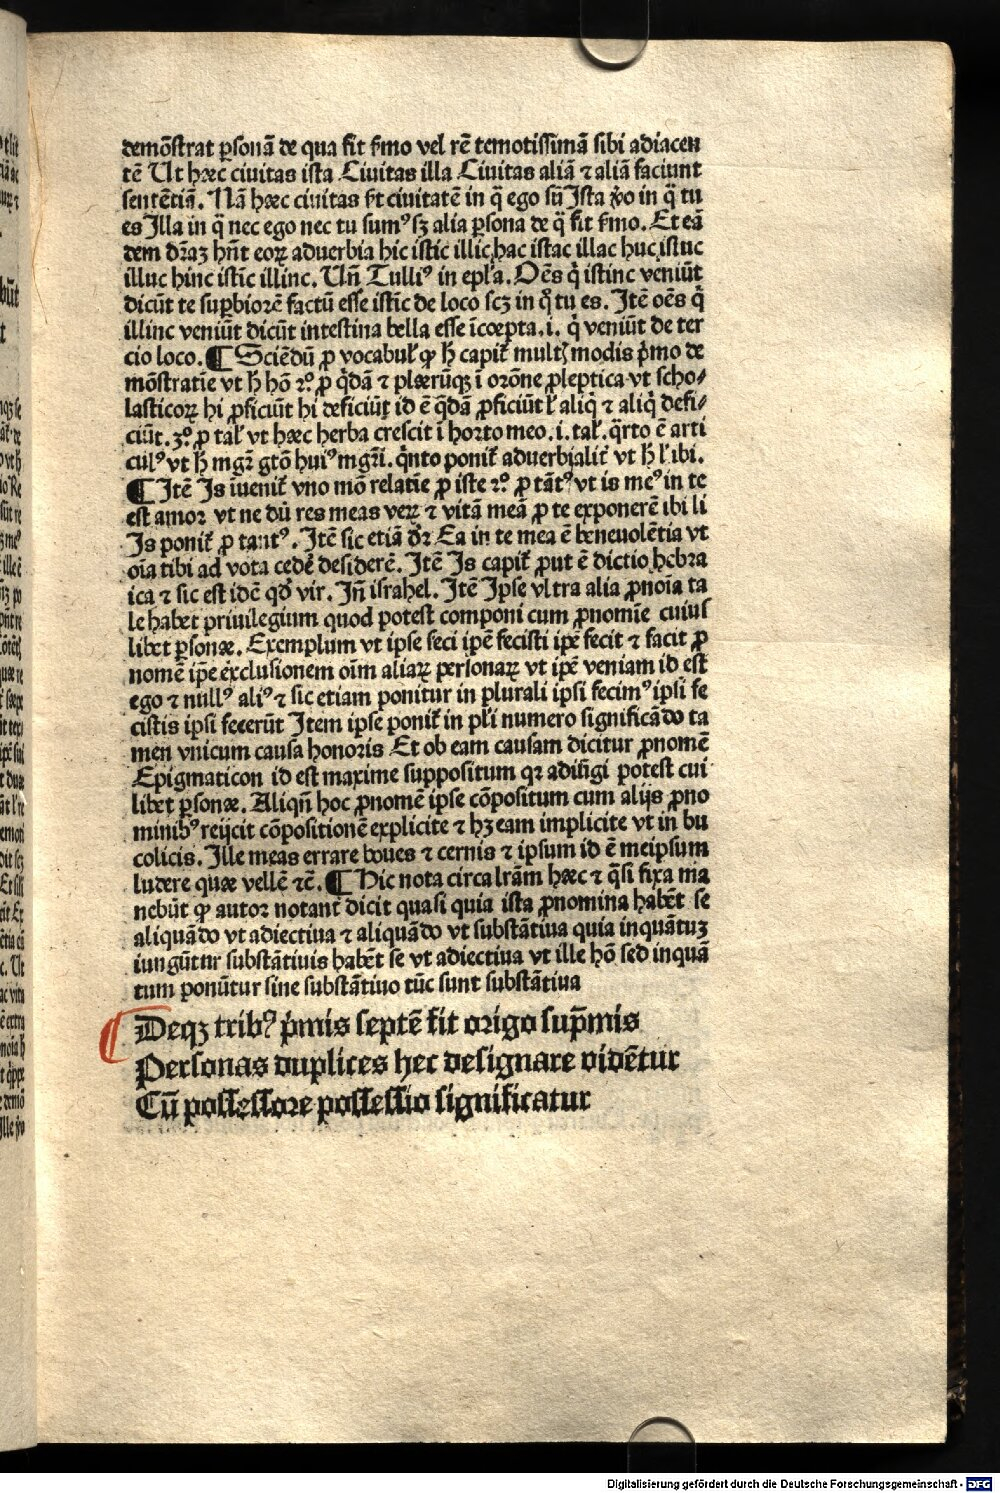 demōstrat ꝑsonā de qua fit ẜmo vel rē remotissimā sibi adiacen
tē Ut hæc ciuitas ista Ciuitas illa Ciuitas aliā ⁊ aliā faciunt
sentētiā. Nā hæc ciuitas ẜt ciuitatē in q̄ ego sū Ista ꝟo in q̄ tu
es Illa in q̄ nec ego nec tu sumꝰ sꝫ alia ꝑsona de q̄ fit ẜmo. Et eā
dem dr̄aꝫ hn̄t eoꝝ aduerbia hic istic illic hac istac illac huc istuc
illuc hinc istic illinc. Un̄ Tulliꝰ in epl̄a. Oēs q̇ istinc veniūt
dicūt te suꝑbiorē factū esse istīc de loco scꝫ in q̊ tu es. Itē oēs q̇
illinc veniūt dicūt intestina bella esse īcœpta .i. q̇ veniūt de ter
cio loco. ¶ Sciēdū ꝓ vocabuł ꝙ h̄ capiť multꝭ modis p̄mo de
mōstratīe vt h̄ hō 2⁰. ꝓ q̇dā ⁊ plærūqꝫ ī orōne ꝓleptica vt scho⸗
lasticoꝝ hi ꝓficiūt hi deficiūt id ē q̇dā ꝓficiūt ł aliq̇ ⁊ aliq̇ defi⸗
ciūt. 3⁰. ꝓ tał vt hæc herba crescit ī horto meo .i. tał. q̈rto ē arti
culꝰ vt h̄ mgr̄ gtō huiꝰ mgr̄i. q̇nto poniť aduerbialiť vt h̄ ł ibi.
¶ Itē Is īueniť vno mō relatīe ꝓ iste 2⁰. ꝓ tātꝰ vt is meꝰ in te
est amor vt ne dū res meas veꝝ ⁊ vitā meā ꝓ te exponerē ibi li
Is poniť ꝓ tantꝰ. Itē sic etiā dr̄ Ea in te mea ē beneuolētia vt
oīa tibi ad vota cedē desiderē. Itē Is capiť ꝓut ē dictio hebra
ica ⁊ sic est idē qd̄ vir. In̄ israhel. Itē Ipse vltra alia ꝓnoīa ta
le habet priuilegium quod potest componi cum ꝓnomīe cuius
libet ꝑsonæ. Exemplum vt ipse feci ipē fecisti ipē fecit ⁊ facit ꝓ
nomē ipē exclusionem oīm aliaꝝ personaꝝ vt ipē veniam id est
ego ⁊ nullꝰ aliꝰ ⁊ sic etiam ponitur in plurali ipsi fecimꝰ ipsi fe
cistis ipsi fecerūt Item ipse poniť in pl̄i numero significādo ta
men vnicum causa honoris Et ob eam causam dicitur ꝓnomē
Epigmaticon id est maxime suppositum qꝛ adiūgi potest cui
libet ꝑsonæ. Aliqn̄ hoc ꝓnomē ipse cōpositum cum alijs ꝓno
minibꝰ reijcit cōpositionē explicite ⁊ hꝫ eam implicite vt in bu
colicis. Ille meas errare boues ⁊ cernis ⁊ ipsum id ē meipsum
ludere quæ vellē ⁊c̄. ¶ Hic nota circa lr̄am hæc ⁊ q̈si fixa ma
nebūt ꝙ autor notant̄ dicit quasi quia ista ꝓnomina habēt se
aliquādo vt adiectiua ⁊ aliquādo vt substātiua quia inquātuꝫ
iungūtur substātiuis habēt se vt adiectiua vt ille hō sed inquā
tum ponūtur sine substātiuo tūc sunt substātiua
Deqꝫ tribꝰ p̄mis septē fit origo sup̄mis
Personas duplices hec designare vidētur
Cū possessore possessio significatur
Digitalisierung gefördert durch die Deutsche Forschungsgemeinschaft - DFG